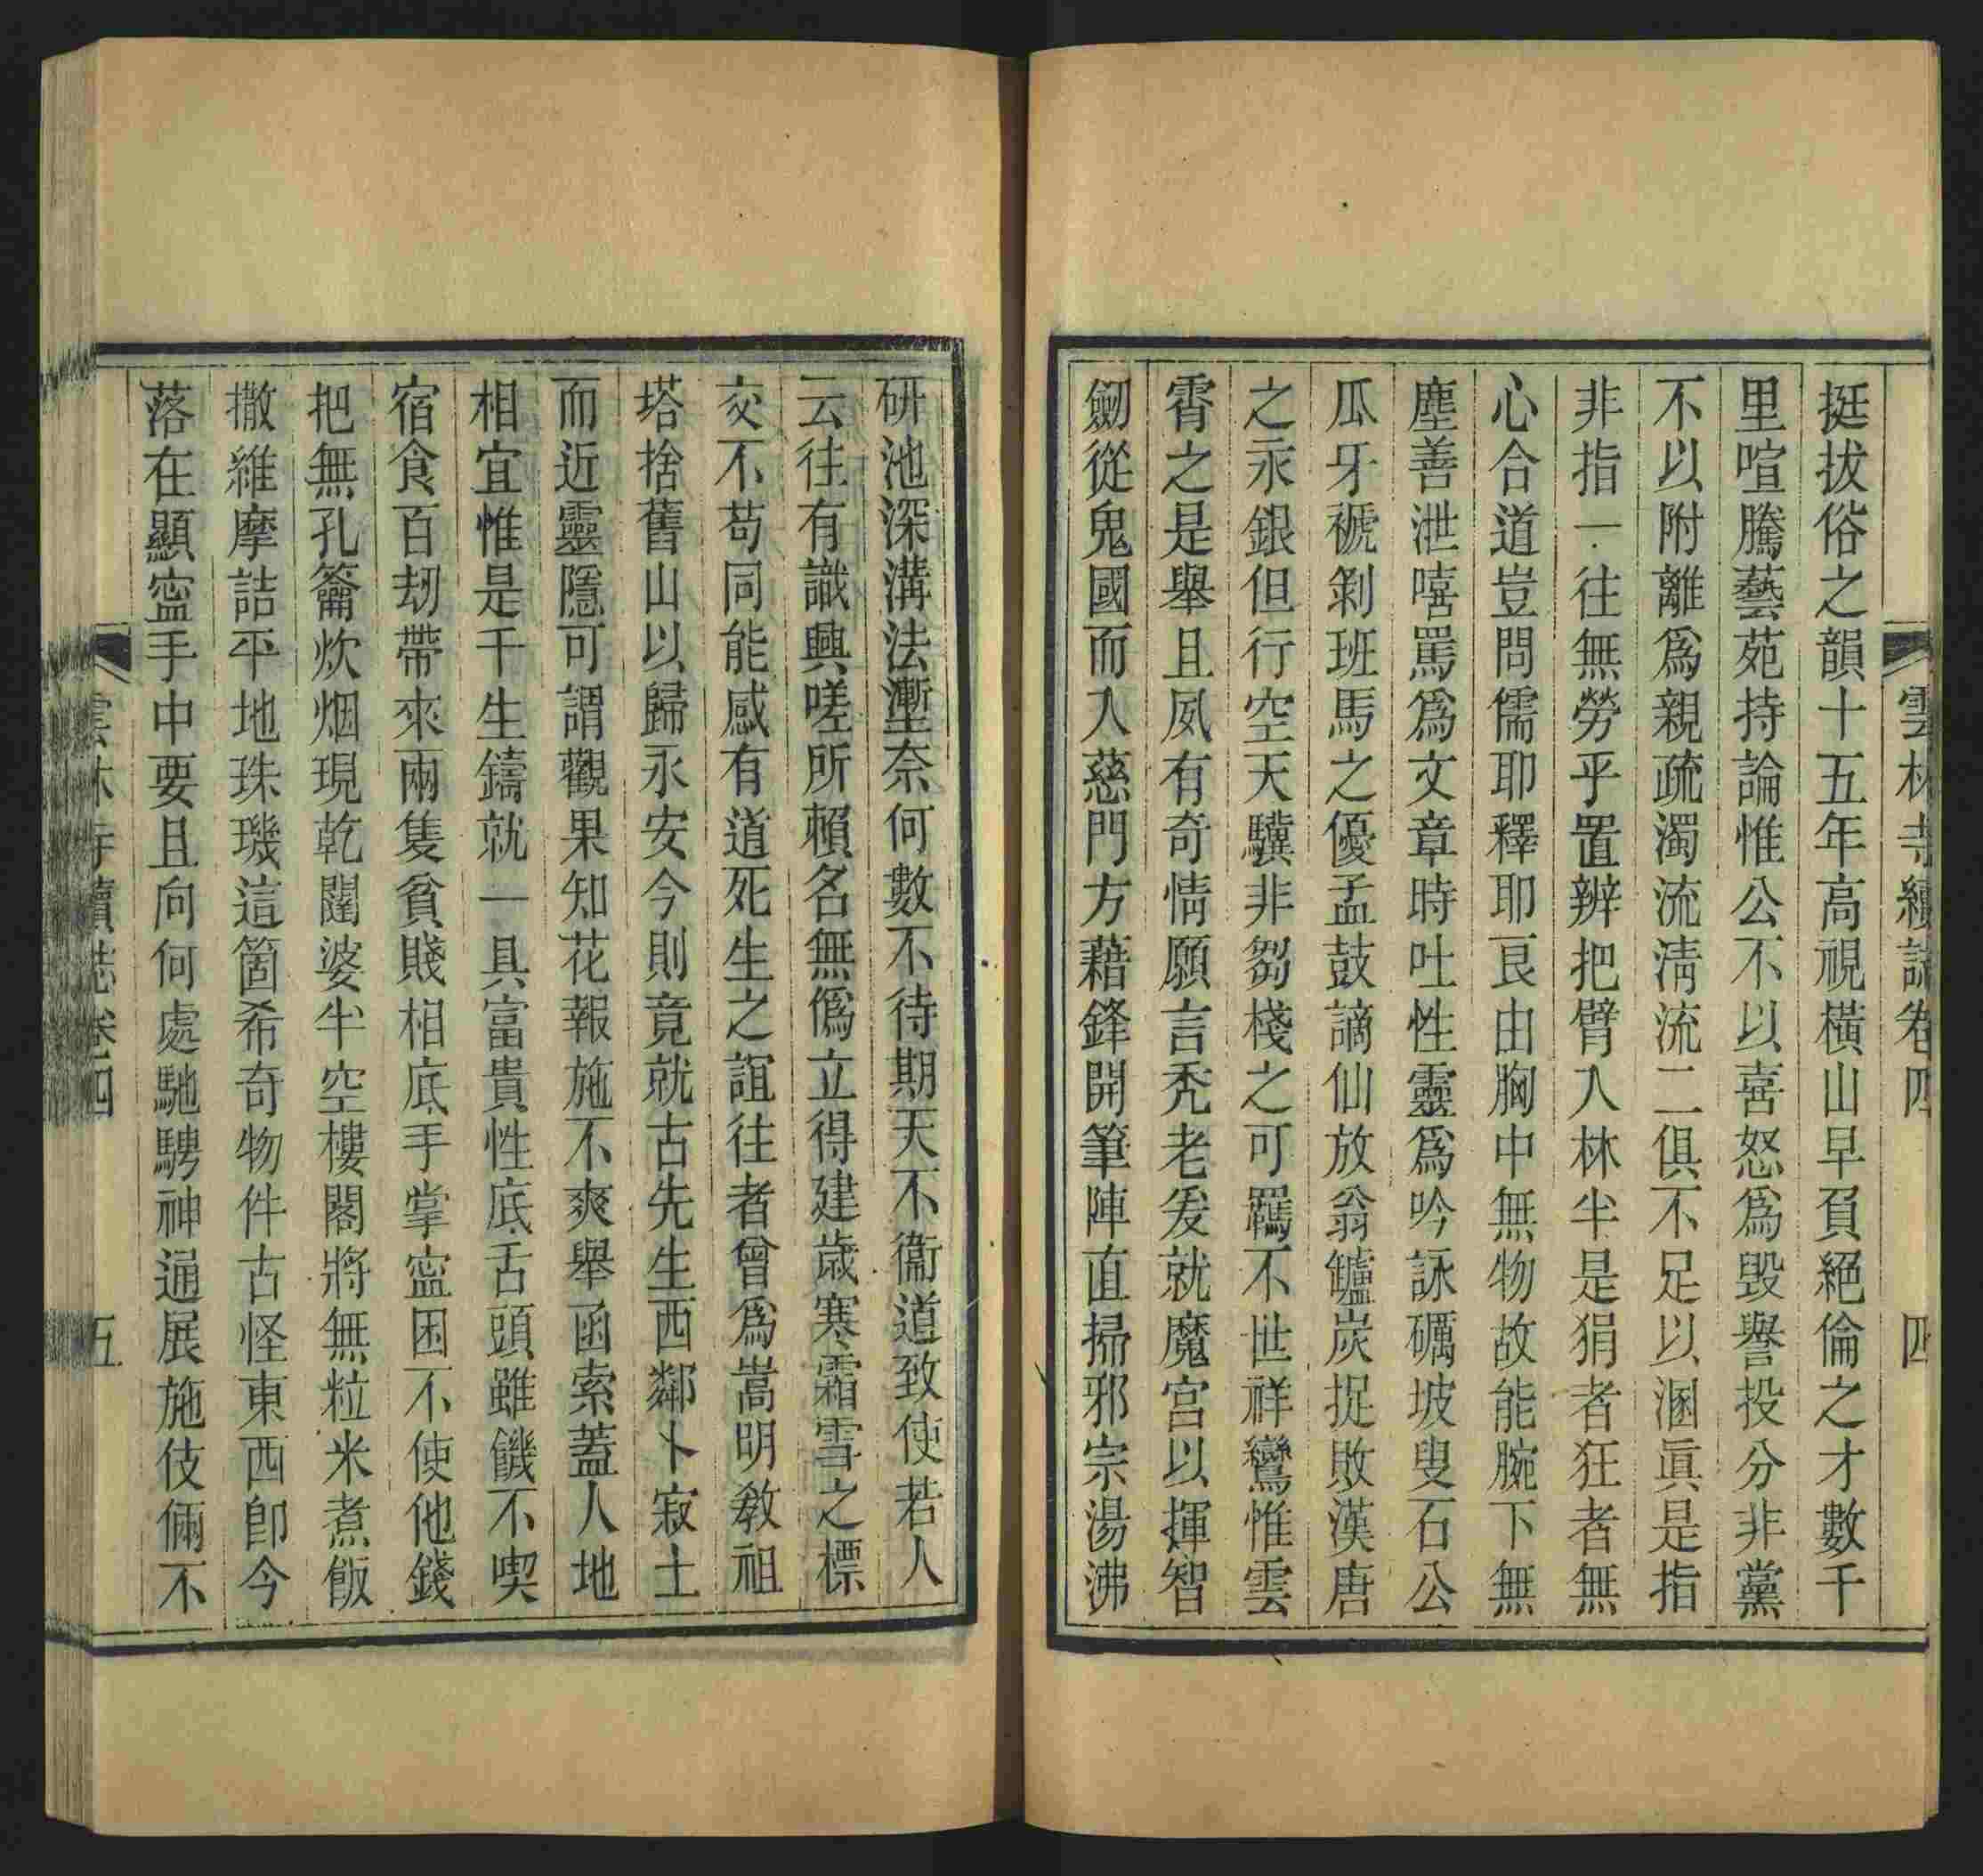 雲林寺續誌卷四 四
挺拔俗之韻十五年高視橫山早負絕倫之才數千
里喧騰藝苑持論惟公不以喜怒爲毀譽投分非黨
不以附離爲親疏濁流淸流二俱不足以溷眞是指
非指一往無勞乎置辨把臂入林半是狷者狂者無
心合道豈問儒耶釋耶艮由胸中無物故能腕下無
塵善泄嘻罵爲文章時吐性靈爲吟詠礪坡叟石公
瓜牙褫剝班馬之優孟鼓謫仙放翁罏炭捉敗漢唐
之汞銀但行空天驥非芻棧之可羈不世祥鸞惟雲
霄之是舉且夙有奇情願言禿老爰就魔宮以揮智
劒從鬼國而入慈門方藉鋒開筆陣直掃邪宗湯沸
研池深溝法塹奈何數不待期天不衞道致使若人
云往有識興嗟所賴名無僞立得建歲寒霜雪之標
交不苟同能感有道死生之誼往者曾爲嵩明敎祖
塔捨舊山以歸永安今則竟就古先生西鄰卜寂土
而近靈隱可謂觀果知花報施不爽舉函索蓋人地
相宜惟是千生鑄就一具富貴性底舌頭雖饑不喫
宿食百刼帶來兩隻貧賤相底手掌寍困不使他錢
把無孔籥炊烟現乾闥婆半空樓閣將無粒米煮飯
撒維摩詰平地珠璣這箇希奇物件古怪東西卽今
落在顯寍手中要且向何處馳騁神通展施伎倆不
雲林寺續誌卷四 五